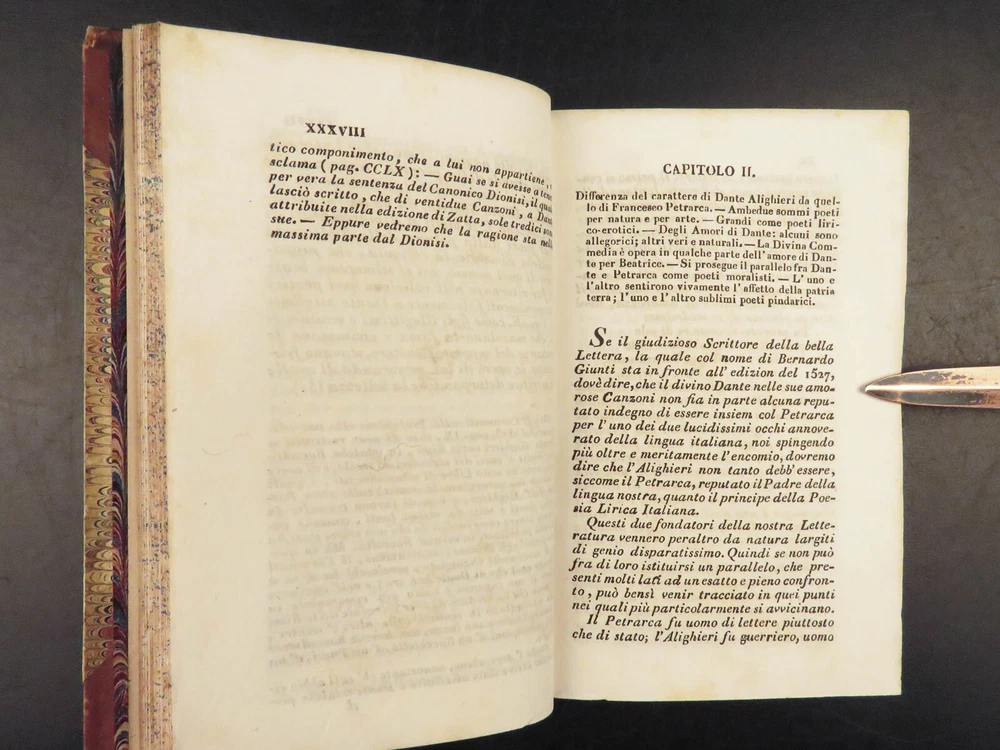 XXXVIII
tico componimento, che a lui non appartiene,
sclama (pag. CCLX): — Guai se si avesse a tener
per vera la sentenza del Canonico Dionisi, il quale
lasciò scritto, che di ventidue Canzoni, a Dante
attribuite nella edizione di Zatta, sole tredici son
sue. — Eppure vedremo che la ragione sta nella
massima parte dal Dionisi.
CAPITOLO II.
Differenza del carattere di Dante Alighieri da quel-
lo di Francesco Petrarca. — Ambedue sommi poeti
per natura e per arte. — Grandi come poeti liri-
co-erotici. — Degli Amori di Dante: alcuni sono
allegorici; altri veri e naturali. — La Divina Com-
media è opera in qualche parte dell'amore di Dan-
te per Beatrice. — Si prosegue il parallelo fra Dan-
te e Petrarca come poeti moralisti. — L'uno e
l'altro sentirono vivamente l'affetto della patria
terra; l'uno e l'altro sublimi poeti pindarici.
Se il giudizioso Scrittore della bella
Lettera, la quale col nome di Bernardo
Giunti sta in fronte all'edizion del 1527,
dovè dire, che il divino Dante nelle sue amo-
rose Canzoni non fia in parte alcuna repu-
tato indegno di essere insiem col Petrarca
per l'uno dei due lucidissimi occhi annove-
rato della lingua italiana, noi spingendo
più oltre e meritamente l'encomio, dovremo
dire che l'Alighieri non tanto debb'essere,
siccome il Petrarca, reputato il Padre della
lingua nostra, quanto il principe della Poe-
sia Lirica Italiana.
Questi due fondatori della nostra Lette-
ratura vennero peraltro da natura largiti
di genio disparatissimo. Quindi se non può
fra di loro istituirsi un parallelo, che pre-
senti molti lati ad un esatto e pieno confron-
to, può bensì venir tracciato in quei punti
nei quali più particolarmente si avvicinano.
Il Petrarca fu uomo di lettere piuttosto
che di stato; l'Alighieri fu guerriero, uomo